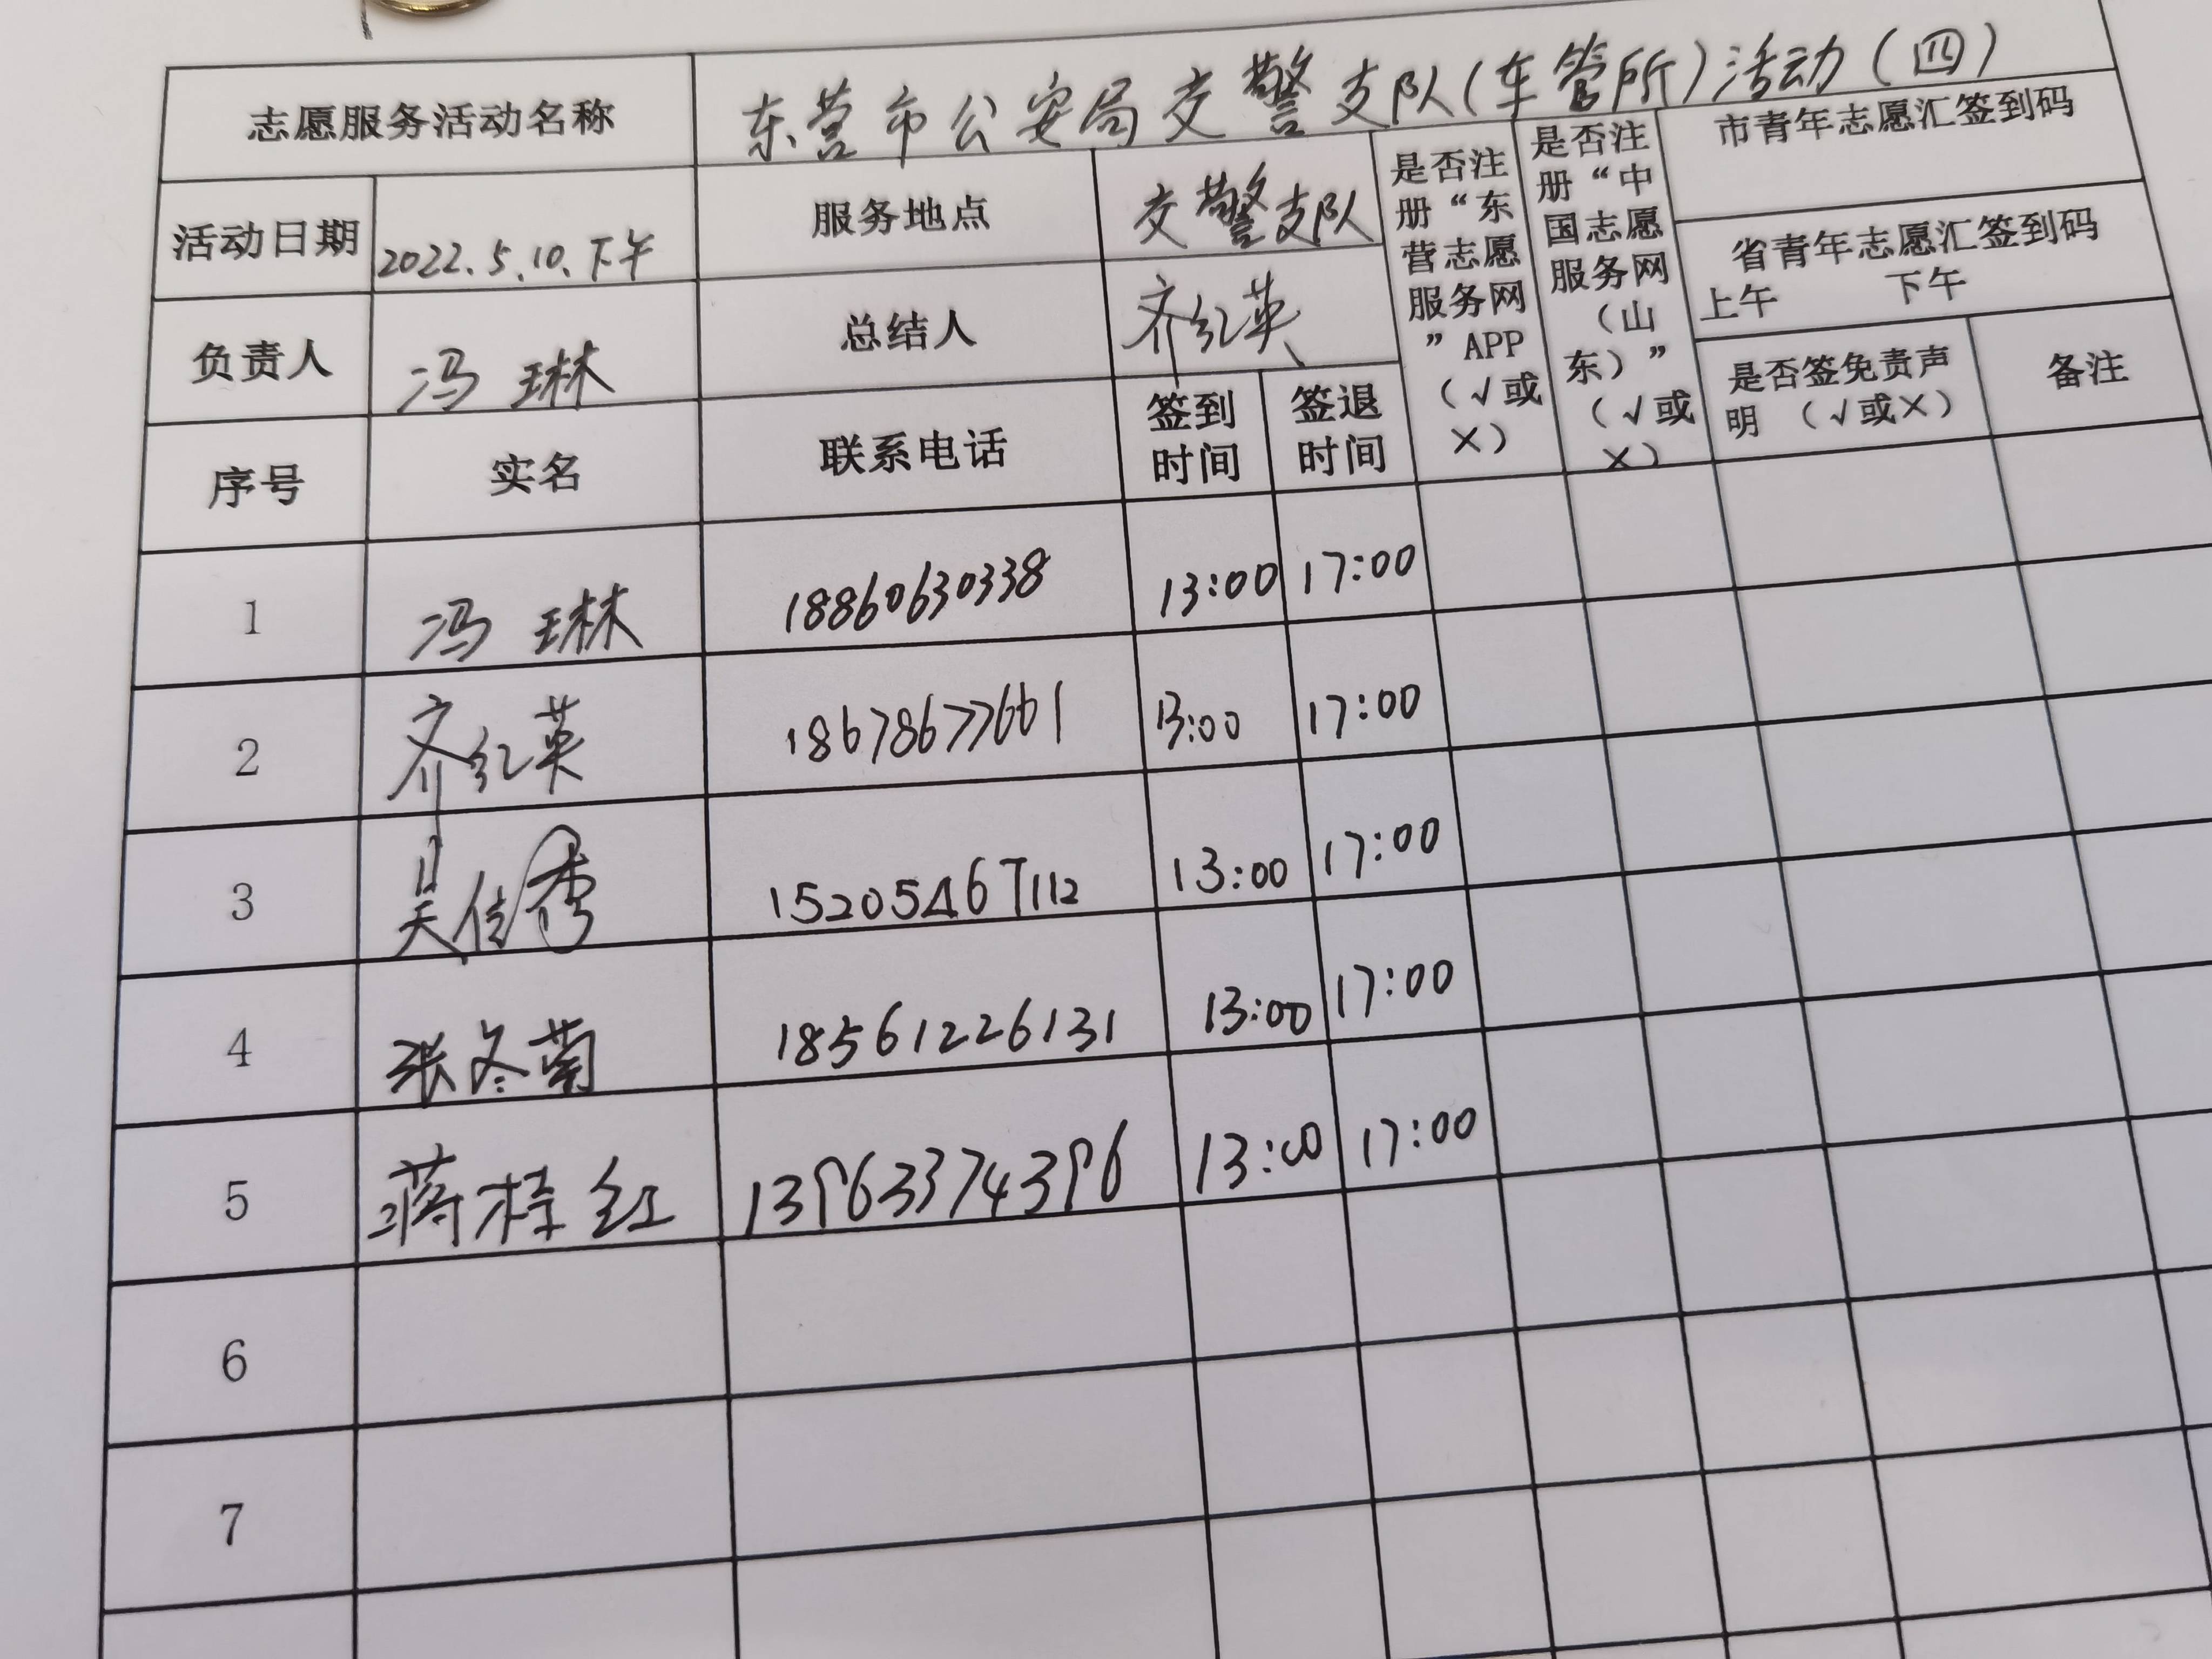 志愿服务活动名称 东营市公安局交警支队(车管所)活动(四)
活动日期 2022.5.10.下午 服务地点 交警支队
是否注册“东营志愿服务网”APP（√或×）
是否注册“中国志愿服务网（山东）”（√或×）
市青年志愿汇签到码
省青年志愿汇签到码
上午 下午
负责人 冯琳 总结人 齐红英
是否签免责声明（√或×） 备注
序号 实名 联系电话 签到时间 签退时间
1 冯琳 18860630338 13:00 17:00
2 齐红英 18678677661 13:00 17:00
3 吴佳秀 15205467112 13:00 17:00
4 张冬菊 18561226131 13:00 17:00
5 蒋桂红 13963374396 13:00 17:00
6
7